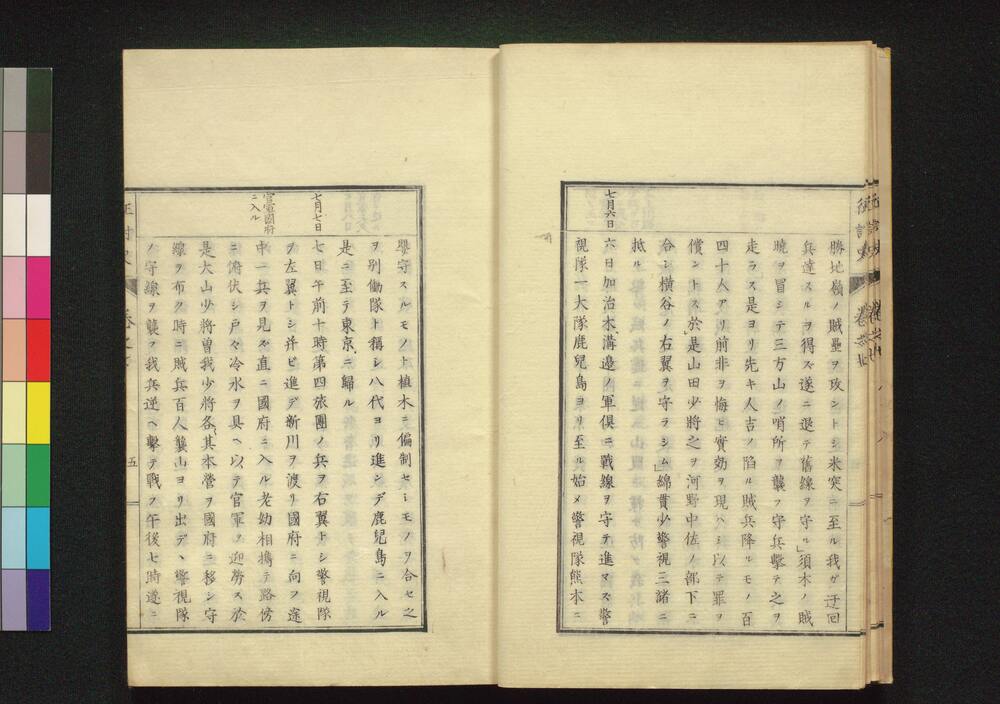 勝地嶺ノ賊壘ヲ攻ントシ米突ニ至ル我ガ迂回
兵達スルヲ得ズ遂ニ退テ舊線ヲ守ル」須木ノ賊
曉ヲ冒シテ三方山ノ哨所ヲ襲フ守兵擊テ之ヲ
走ラス是ヨリ先キ人吉ノ陷ル賊兵降ルモノ百
四十人アリ前非ヲ悔ヒ實効ヲ現ハシ以テ罪ヲ
償ントス於是山田少將之ヲ河野中佐ノ部下ニ
合シ横谷ノ右翼ヲ守ラシム」綿貫少警視三諸ニ
抵ル
七月六日
六日加治木、溝邊ノ軍倶ニ戰線ヲ守テ進マズ警
視隊一大隊鹿兒島ヨリ至ル始メ警視隊熊本ニ
嬰守スルモノト植木ニ偏制セシモノヲ合セ之
ヲ別働隊ト稱シ八代ヨリ進ンデ鹿兒島ニ入ル
是ニ至テ東京ニ歸ル
七月七日
七日午前十時第四旅團ノ兵ヲ右翼トシ警視隊
ヲ左翼トシ并ビ進デ新川ヲ渡リ國府ニ向フ途
官軍國府
ニ入ル
中一兵ヲ見ズ直ニ國府ニ入ル老幼相攜テ路傍
ニ俯伏シ戸々冷水ヲ具ヘ以テ官軍ヲ迎勞ス於
是大山少將曽我少將各其本營ヲ國府ニ移シ守
線ヲ布ク時ニ賊兵百人襲山ヨリ出デヽ警視隊
ノ守線ヲ襲フ我兵逆ヘ擊テ戰フ午後七時遂ニ
五